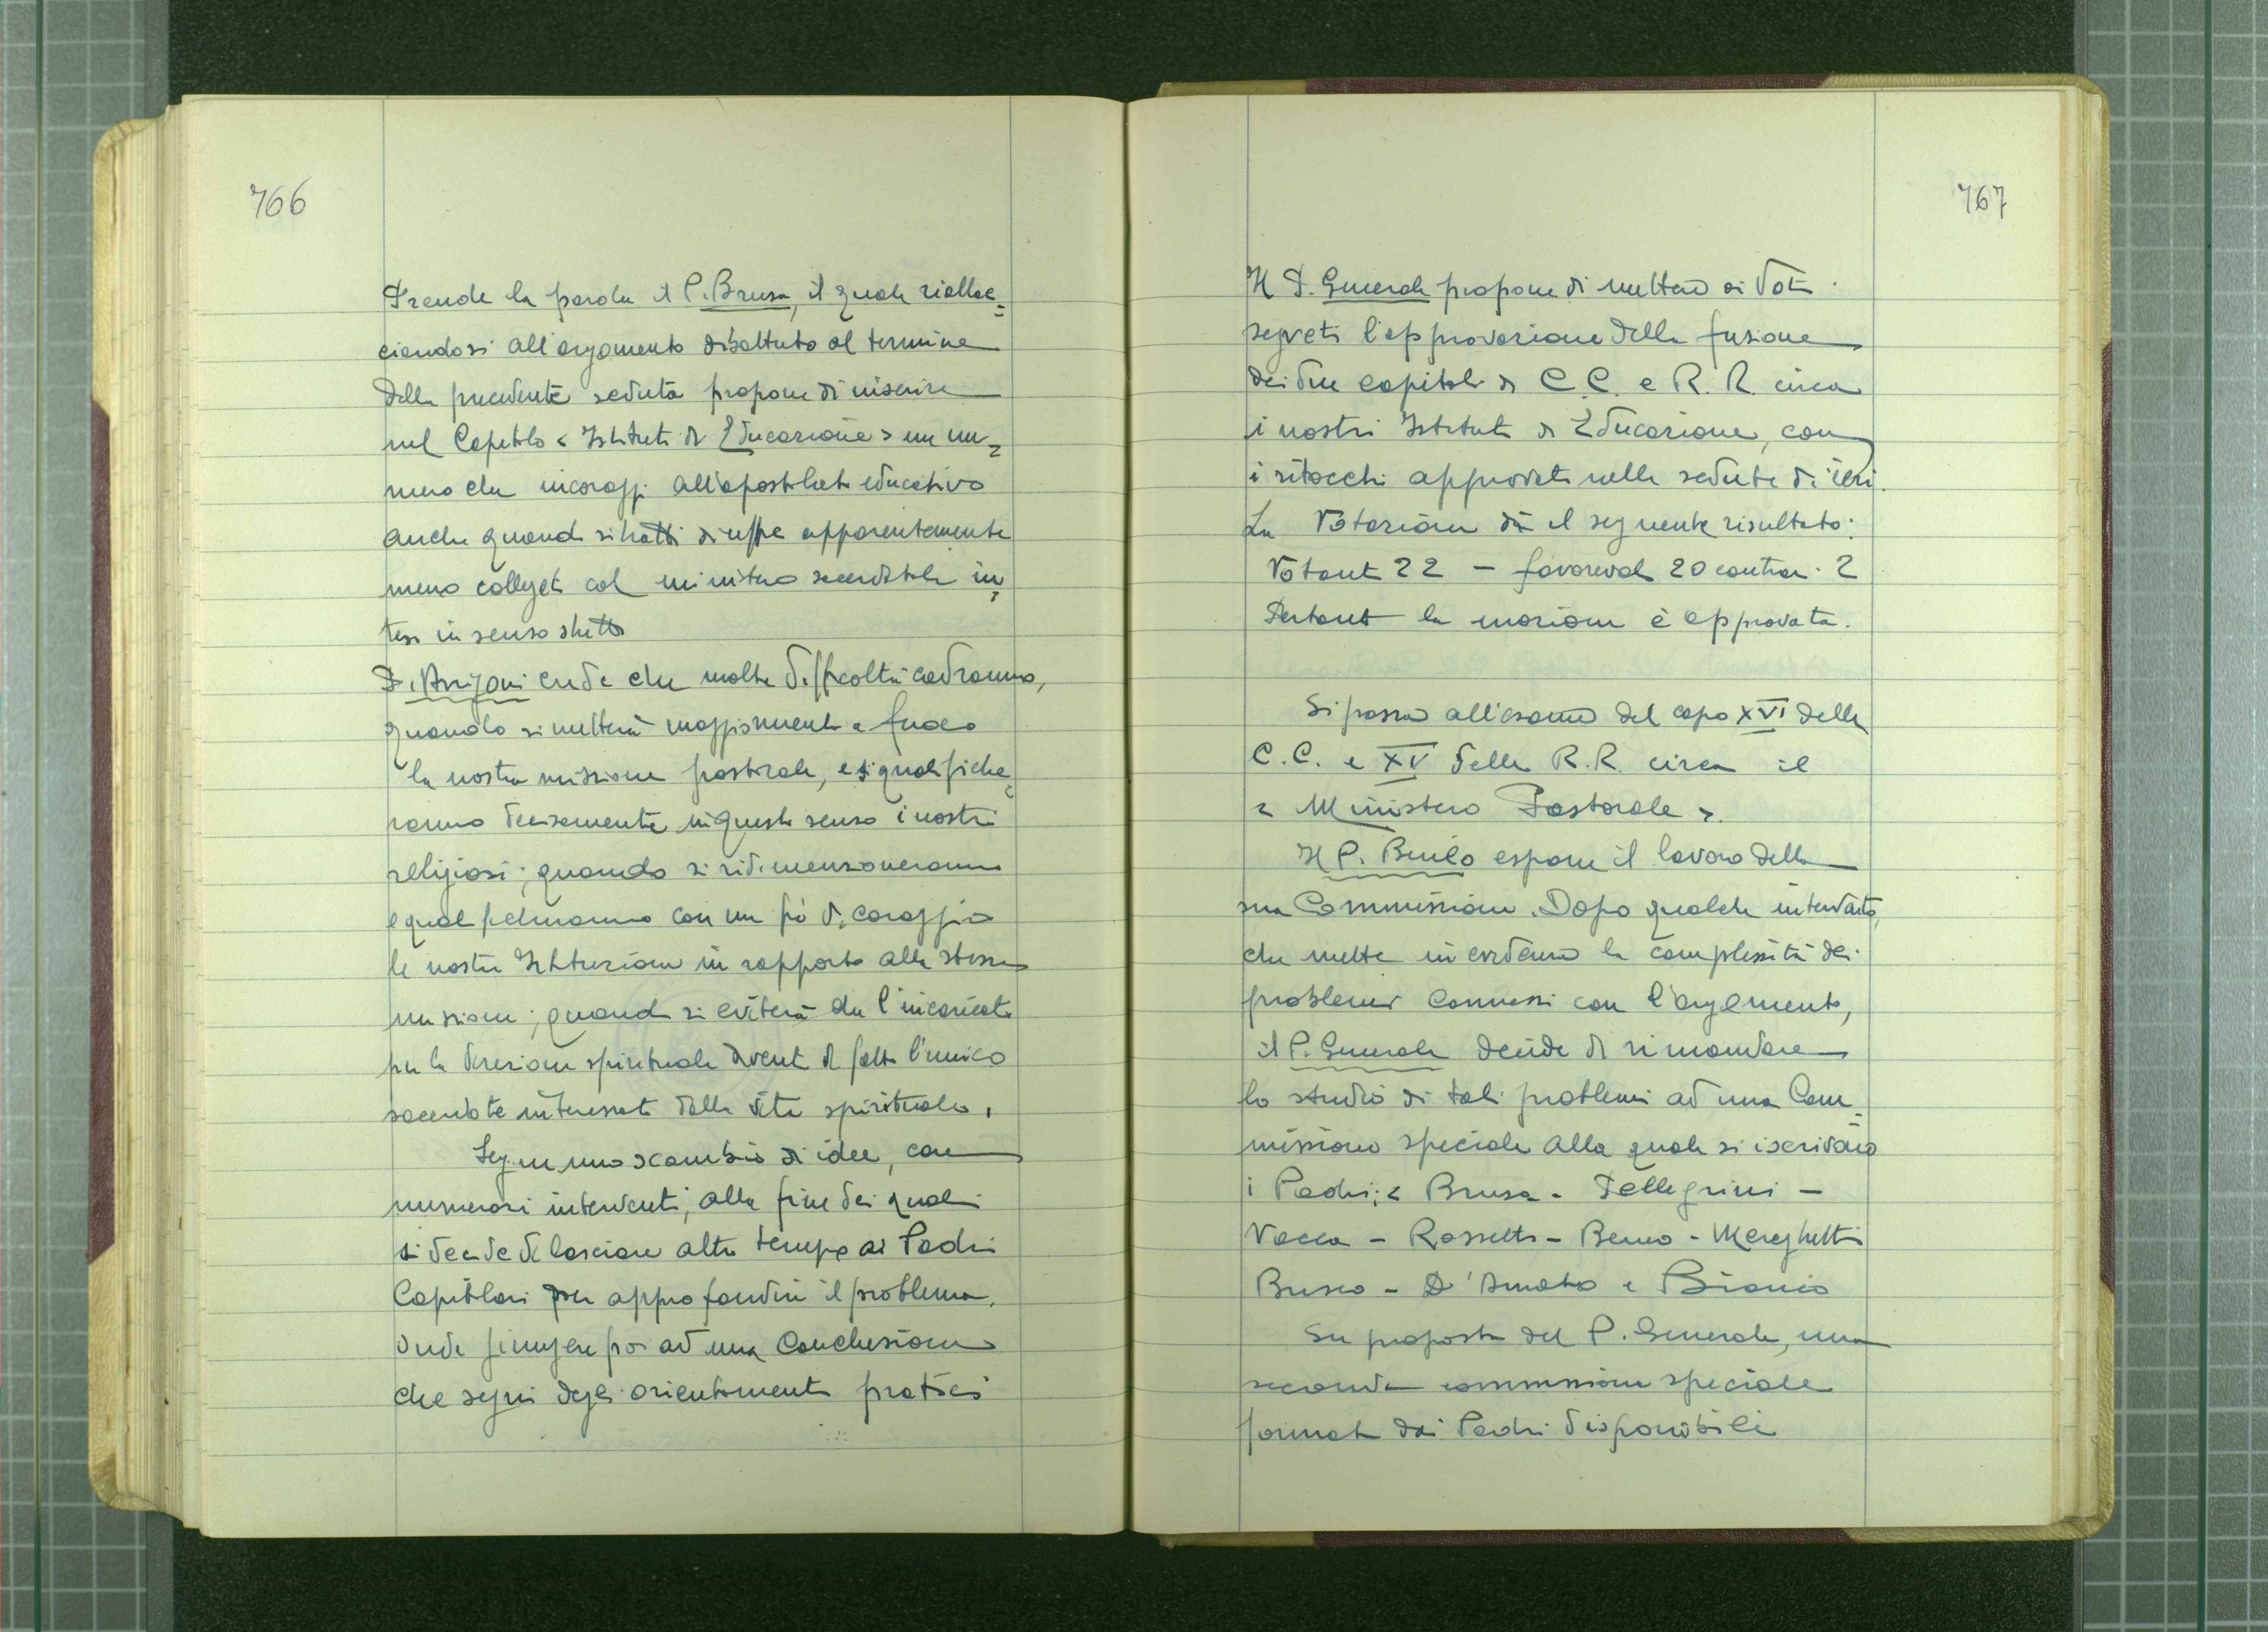 766
Prende la parola il P. Brusa, il quale riallac=
ciandosi all'argomento dibattuto al termine
della precedente seduta propone di inserire
nel Capitolo < Istituti di Educazione > un nu=
mero che incoraggi all'apostolato educativo
anche quando si tratti di uffici apparentemente
meno collegati col ministero sacerdotale in=
teso in senso stretto
P. Arrigoni crede che molte difficoltà cadranno,
quando si metterà maggiormente a fuoco
la nostra missione pastorale, e si qualifiche=
ranno decisamente in questo senso i nostri
religiosi; quando si ridimensioneranno
e qual con un pò di coraggio
le nostre Istituzioni in rapporto alla stessa
missione; quando si eviterà che l'incaricato
per la direzione spirituale diventi di fatto l'unico
sacerdote interessato della vita spirituale.
Segue uno scambio di idee, con
numerosi interventi, alla fine dei quali
si decide di lasciare altro tempo ai Padri
Capitolari per approfondire il problema,
onde giungere poi ad una conclusione
che segni degli orientamenti pratici
767
Il P. Generale propone di mettere ai voti
segreti l'approvazione della fusione
dei due capitoli di C.C. e R.R. circa
i nostri Istituti di Educazione, con
i ritocchi approvati nella seduta di ieri.
La votazione dà il seguente risultato:
Votanti 22 - favorevoli 20 contrari 2
Pertanto la mozione è approvata.
Si passa all'esame del capo XVI delle
C.C. e XV delle R.R. circa il
< Ministero Pastorale >.
Il P. Benso espone il lavoro della
sua Commissione. Dopo qualche intervento,
che mette in evidenza la complessità dei
problemi connessi con l'argomento,
il P. Generale decide di rimandare
lo studio di tali problemi ad una Com=
missione speciale alla quale si iscrivono
i Padri: < Brusa - Pellegrini -
Vacca - Rossetti - - Mereghetti
Busco - D'Amato e Bianco
Su proposta del P. Generale, una
seconda commissione speciale
formata dai Padri disponibili